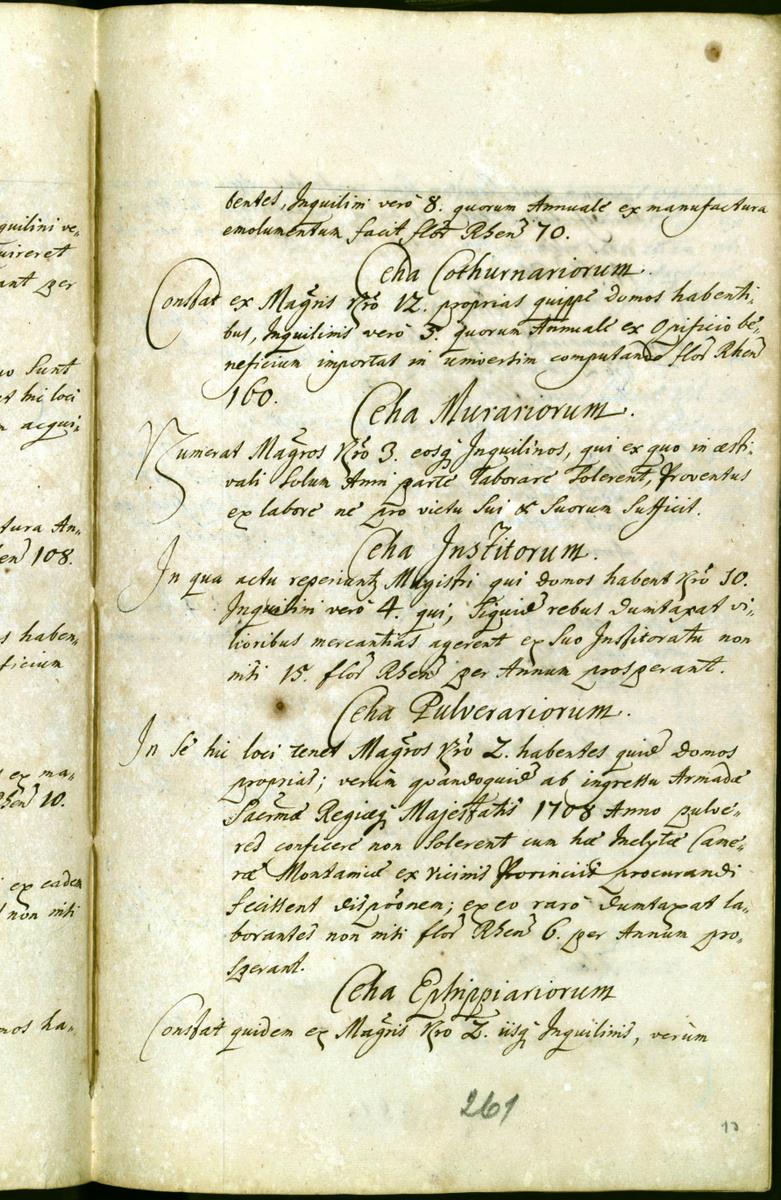 quilini ve-
uireret
ant per
uo Sunt
et hic loci
m acqui-
tura An-
en̄ 108.
s haben-
ficium
s ex ma-
Rhen̄ 10.
i ex eadem
non nisi
mos ha-
bentes, Inquilini verò 8. quorum Annuale ex manufactura
emolumentum facit flor̄ Rhen̄ 70.
Ceha Cothurnariorum.
Constat ex Magr̄is Nrō 12. proprias quippe Domos habenti-
bus, Inquilinis verò 3. quorum Annuale ex Opificio be-
neficium importat in universim computando flor̄ Rhen̄
160.
Ceha Murariorum.
Numerat Magr̄os Nrō 3. eosq̄ Inquilinos, qui ex quo in æsti-
vali solum Anni parte laborare solerent, Proventus
ex labore ne pro victu sui & suorum sufficit.
Ceha Institorum.
In qua actu reperiunt̄ Magistri qui domos habent Nrō 10.
Inquilini verò 4. qui, siquid̄ rebus dumtaxat vi-
lioribus mercantias agerent ex suo Institoratu non
nisi 15. flor̄ Rhen̄ per Annum prosperant.
Ceha Pulverariorum.
In se hic loci tenet Magr̄os Nrō 2. habentes quid̄ domos
proprias; verùm quandoquid̄ ab ingressu Armadæ
Sacr̄mæ Regiæq̄ Majestatis 1708 Anno pulve-
res conficere non solerent cum hæ Inclytæ Came-
ræ Montanicæ ex vicinis Provinciis procurandi
fecissent dispōōnem; ex eo rarò dumtaxat la-
borantes non nisi flor̄ Rhen̄ 6. per Annum pro-
sperant.
Ceha Ephippiariorum
Constat quidem ex Magr̄is Nrō 2. iisq̄ Inquilinis, verùm
261
13